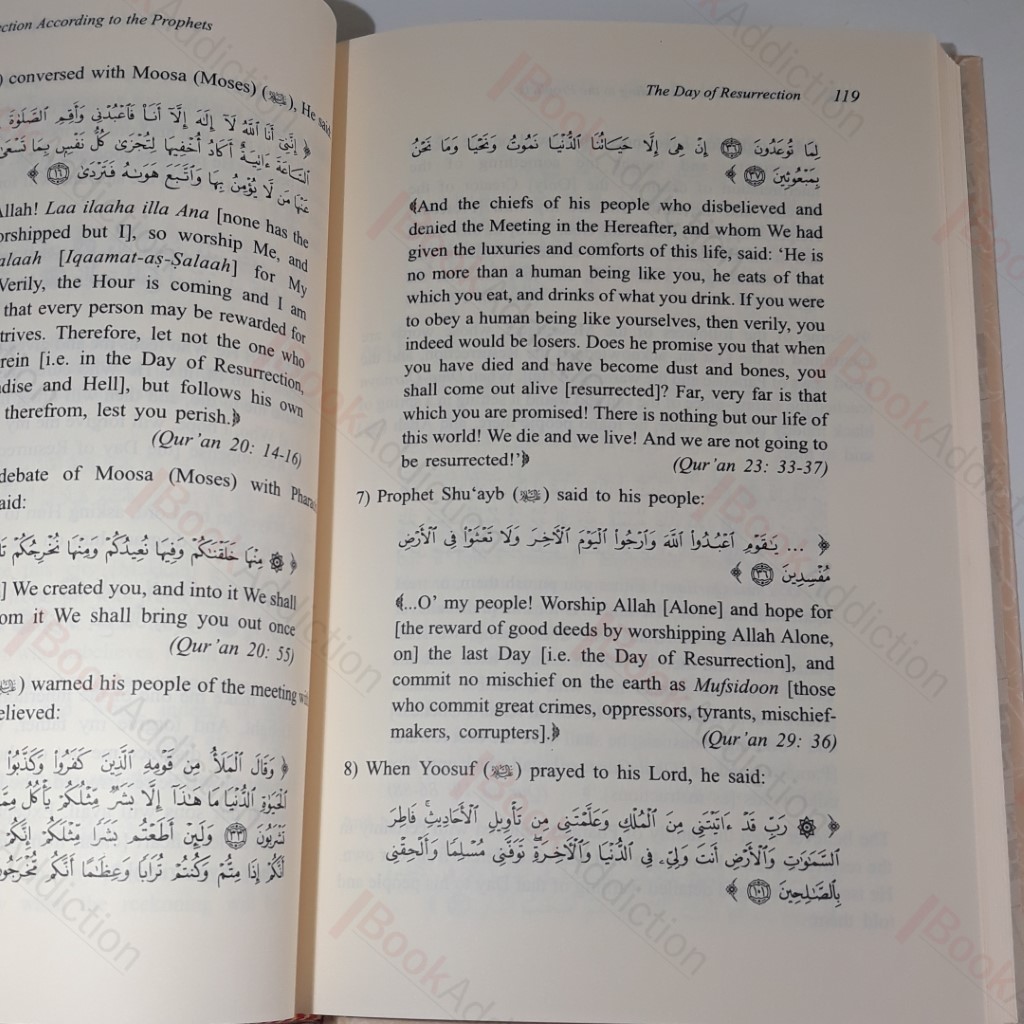 ction According to the Prophets
) conversed with Moosa (Moses) (ﷺ), He said
﴿ إِنَّنِىٓ أَنَا ٱللَّهُ لَآ إِلَـٰهَ إِلَّآ أَنَا۠ فَٱعْبُدْنِى وَأَقِمِ ٱلصَّلَوٰةَ
ٱلسَّاعَةَ ءَاتِيَةٌ أَكَادُ أُخْفِيهَا لِتُجْزَىٰ كُلُّ نَفْسٍۭ بِمَا تَسْعَىٰ
عَنْهَا مَن لَّا يُؤْمِنُ بِهَا وَٱتَّبَعَ هَوَىٰهُ فَتَرْدَىٰ ١٦ ﴾
Allah! Laa ilaaha illa Ana [none has the
orshipped but I], so worship Me, and
alaah [Iqaamat-aṣ-Ṣalaah] for My
Verily, the Hour is coming and I am
that every person may be rewarded for
trives. Therefore, let not the one who
rein [i.e. in the Day of Resurrection,
dise and Hell], but follows his own
therefrom, lest you perish.﴾
(Qur'an 20: 14-16)
debate of Moosa (Moses) with Phara
aid:
﴿ ۞ مِنْهَا خَلَقْنَـٰكُمْ وَفِيهَا نُعِيدُكُمْ وَمِنْهَا نُخْرِجُكُمْ
] We created you, and into it We shall
om it We shall bring you out once
(Qur'an 20: 55)
ﷺ) warned his people of the meeting wi
elieved:
﴿ وَقَالَ ٱلْمَلَأُ مِن قَوْمِهِ ٱلَّذِينَ كَفَرُوا۟ وَكَذَّبُوا۟
ٱلْحَيَوٰةِ ٱلدُّنْيَا مَا هَـٰذَآ إِلَّا بَشَرٌ مِّثْلُكُمْ يَأْكُلُ مِمَّا
تَشْرَبُونَ ٣٣ وَلَئِنْ أَطَعْتُم بَشَرًا مِّثْلَكُمْ إِنَّكُمْ
أَنَّكُمْ إِذَا مِتُّمْ وَكُنتُمْ تُرَابًا وَعِظَـٰمًا أَنَّكُم مُّخْرَجُونَ
The Day of Resurrection 119
لِمَا تُوعَدُونَ ٣٦ إِنْ هِىَ إِلَّا حَيَاتُنَا ٱلدُّنْيَا نَمُوتُ وَنَحْيَا وَمَا نَحْنُ
بِمَبْعُوثِينَ ٣٧ ﴾
﴿And the chiefs of his people who disbelieved and
denied the Meeting in the Hereafter, and whom We had
given the luxuries and comforts of this life, said: ‘He is
no more than a human being like you, he eats of that
which you eat, and drinks of what you drink. If you were
to obey a human being like yourselves, then verily, you
indeed would be losers. Does he promise you that when
you have died and have become dust and bones, you
shall come out alive [resurrected]? Far, very far is that
which you are promised! There is nothing but our life of
this world! We die and we live! And we are not going to
be resurrected!’﴾ (Qur'an 23: 33-37)
7) Prophet Shu‘ayb (ﷺ) said to his people:
﴿ ... يَـٰقَوْمِ ٱعْبُدُوا۟ ٱللَّهَ وَٱرْجُوا۟ ٱلْيَوْمَ ٱلْـَٔاخِرَ وَلَا تَعْثَوْا۟ فِى ٱلْأَرْضِ
مُفْسِدِينَ ٣٦ ﴾
﴿...O’ my people! Worship Allah [Alone] and hope for
[the reward of good deeds by worshipping Allah Alone,
on] the last Day [i.e. the Day of Resurrection], and
commit no mischief on the earth as Mufsidoon [those
who commit great crimes, oppressors, tyrants, mischief-
makers, corrupters].﴾ (Qur'an 29: 36)
8) When Yoosuf (ﷺ) prayed to his Lord, he said:
﴿ ۞ رَبِّ قَدْ ءَاتَيْتَنِى مِنَ ٱلْمُلْكِ وَعَلَّمْتَنِى مِن تَأْوِيلِ ٱلْأَحَادِيثِ ۚ فَاطِرَ
ٱلسَّمَـٰوَٰتِ وَٱلْأَرْضِ أَنتَ وَلِىِّۦ فِى ٱلدُّنْيَا وَٱلْـَٔاخِرَةِ ۖ تَوَفَّنِى مُسْلِمًا وَأَلْحِقْنِى
بِٱلصَّـٰلِحِينَ ١٠١ ﴾
BookAddiction